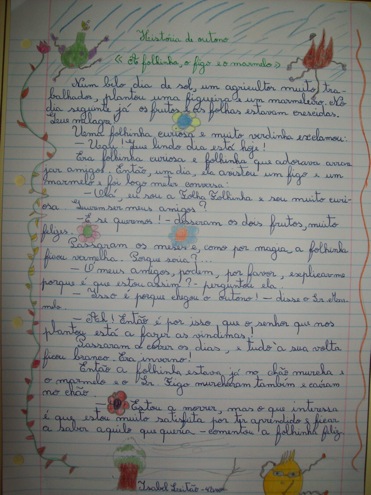 História de outono
« A folhinha, o figo e o marmelo »
Num belo dia de sol, um agricultor muito tra-
balhador, plantou uma figueira e um marmeleiro. No
dia seguinte já os frutos e as folhas estavam crescidas.
Que milagre!
Uma folhinha curiosa e muito verdinha exclamou:
- Uau! Que lindo dia está hoje!
Era folhinha curiosa e folhinha que adorava arran
jar amigos. Então, um dia, ela avistou um figo e um
marmelo e foi logo meter conversa:
- Olá, eu sou a Folha Folhinha e sou muito curi-
osa. Querem ser meus amigos?
- E se queremos! - disseram os dois frutos, muito
felizes.
Passaram os meses e, como por magia, a folhinha
ficou vermelha. Porque seria?...
- Ó meus amigos, podem, por favor, explicar-me
porque é que estou assim? - perguntou ela.
- Isso é porque chegou o outono! - disse o Sr. Mar
melo.
- Ah! Então é por isso que o senhor que nos
plantou está a fazer as vindimas.
Passaram a correr os dias, e tudo à sua volta
ficou branco. Era inverno!
Então a folhinha estava já no chão murcha e
o marmelo e o Sr. Figo murcharam também e caíram
no chão.
- Estou a morrer, mas o que interessa
é que estou muito satisfeita por ter aprendido e ficar
a saber aquilo que queria - comentou a folhinha feliz.
Isabel Leitão